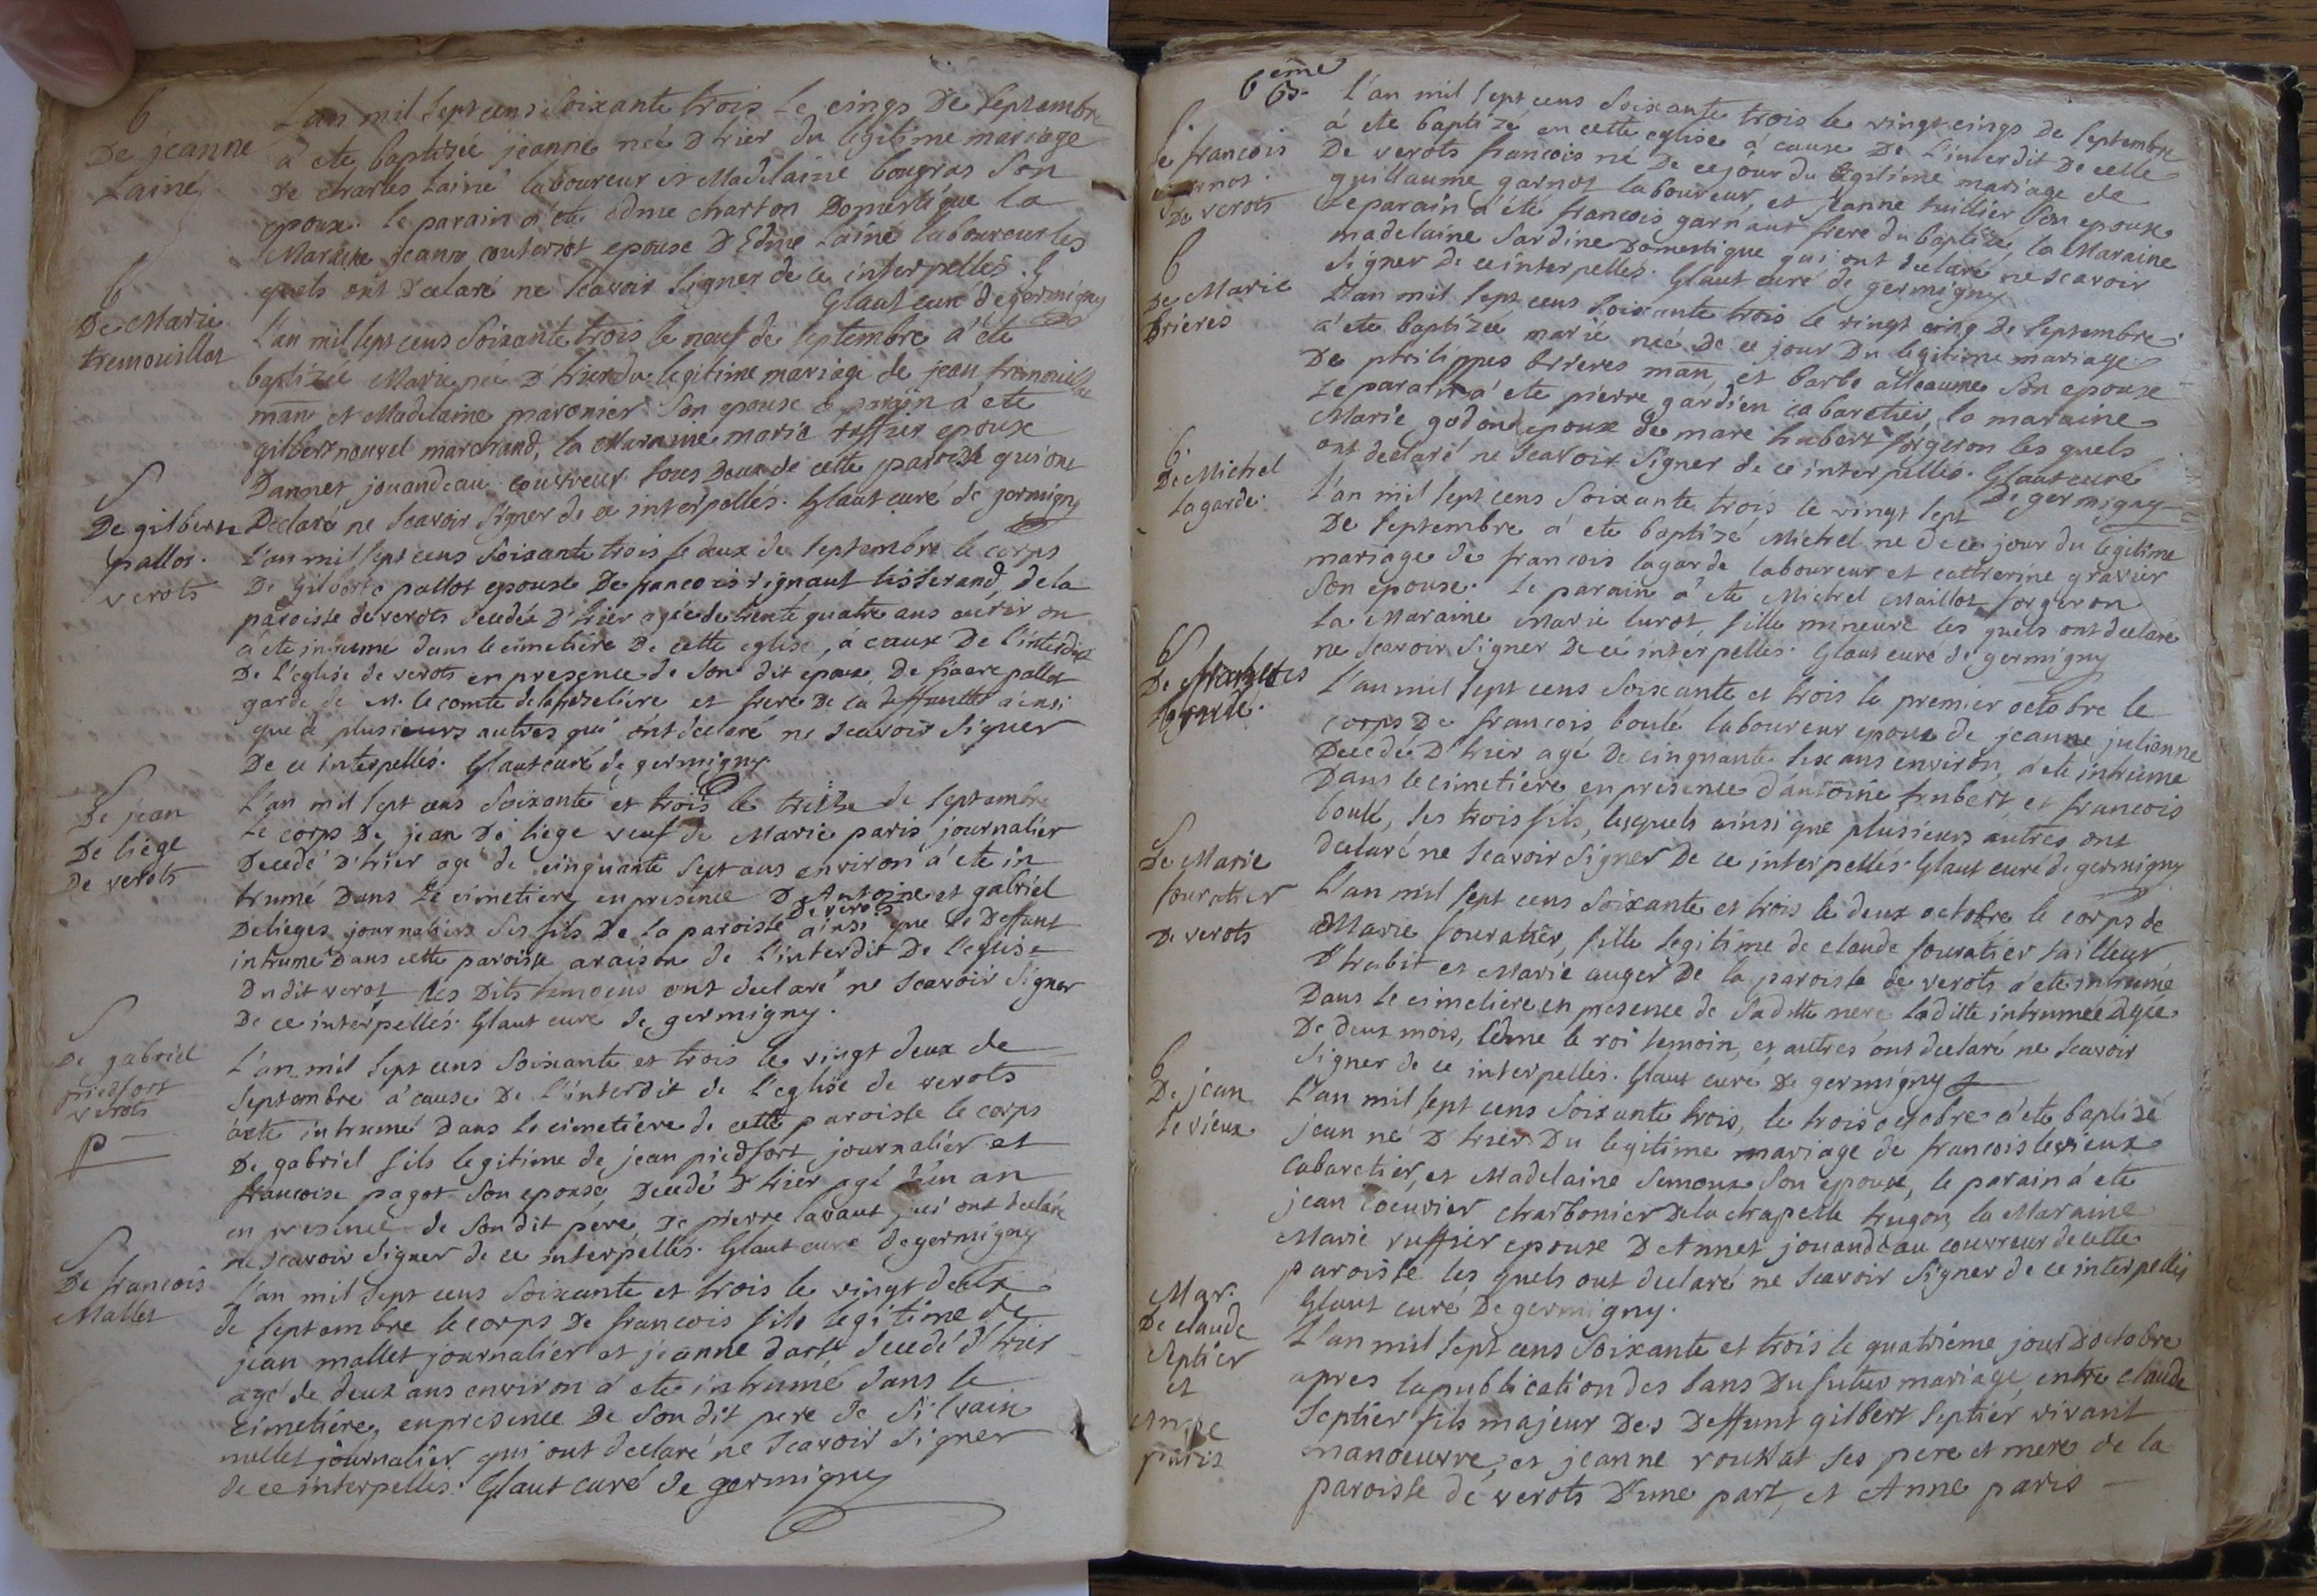 6
De jeanne
Lainé
L'an mil sept cens soixante trois le cinqs De septembre
a ete baptisée jeanne née D hier du legitime mariage
De charles Lainé laboureur et Madelaine bougras son
epouse. le parain a été edme charton Domestique la
Maraine jeanne couteriot epouse D'Edme Lainé laboureur les
quels ont Declaré ne scavoir signer de ce interpellés.
Glaut curé de germigny
6
De Marie
tremouillat
L'an mil sept cens soixante trois le neuf de septembre a été
baptizée Marie née D hier du legitime mariage de jean
man et Madelaine maronier son epouse le parain a ete
gilbert nouvel marchand, la Maraine marie ruffier epouse
Dannet jouandeau couvreur tous Deux de cette paroisse qui ont
Declaré ne scavoir signer de ce interpellés. Glaut curé de germigny
S
De gilberte
pallot.
verots
L'an mil sept cens soixante trois le deux de septembre le corps
De Gilberte pallot epouse De francois rignaut tisserand, de la
paroisse de verots decedée D'hier agée de trente quatre ans environ
a ete inhumé dans le cimetière De cette eglise, à cause De l'interdit
De l'eglise de verots en presence de son dit epoux, De pallot
garde de M. le comte de et frere De la deffunte ainsi
que de plusieurs autres qui ont declaré ne scavoir signer
De ce interpellés. Glaut curé de germigny.
S
De jean
De liege
De verots
L'an mil sept cens soixante et trois le treize de septembre
Le corps De jean De liege veuf de Marie paris journalier
Decedé D'hier agé de cinquante sept ans environ a été in
humé Dans Le cimetiere en presence D'Antoine et gabriel
De verots
Delieges journaliers ses fils De la paroisse ainsi que le Deffunt
inhumé Dans cette paroisse a raison de l'interdit De l'eglise
Du dit verot les Dits temoins ont declaré ne scavoir signer
De ce interpellés. Glaut curé de germigny.
S
De gabriel
piedfort
verots
p
L'an mil sept cens soixante et trois le vingt deux de
septembre à cause De l'interdit de l'eglise de verots
a ete inhumé dans le cimetière de cette paroisse le corps
De gabriel fils legitime de jean piedfort journalier et
francoise pagot son epouse, Decedé D'hier agé d'un an
en presence de son dit pere, De pierre lavaut qui ont declaré
ne scavoir signer de ce interpellés. Glaut curé de germigny
S
De francois
Mallet
L'an mil sept cens soixante et trois le vingt deux
de septembre le corps De francois fils legitime de
jean mallet journalier et jeanne decedé d'hier
agé de deux ans environ a ete inhumé dans le
cimetiere, en presence De son dit pere de silvain
mallet journalier qui ont declaré ne scavoir signer
de ce interpellés. Glaut curé de germigny
6eme
63.
francois
garnot.
De verots
L'an mil sept cens soixante trois le vingt cinqs de septembre
à ete baptizé en cette eglise à cause De L'interdit De celle
De verots francois né De ce jour du legitime mariage de
guillaume garnot laboureur, et Jeanne tuillier son epouse
Le parain a été francois garnaut frere du baptizé, la Maraine
madelaine sardine Domestique qui ont declaré ne scavoir
signer De ce interpellés. Glaut curé de germigny
6
De Marie
brieres
L'an mil sept cens soixante trois le vingt cinq de septembre
a ete baptizée marie née de ce jour Du legitime mariage
De philippes brieres man, et barbe alleaume son epouse
Le parain a ete pierre gardien cabaretier, la maraine
Marie godon epouse de marc hubert forgeron les quels
ont declaré ne scavoir signer de ce interpellés. Glaut curé
De germigny
6.
De Michel
lagarde.
L'an mil sept cens soixante trois le vingt sept
De septembre a ete baptizé Michel né de ce jour du legitime
mariage de francois lagarde laboureur et catherine gravier
son epouse. le parain a ete Michel Maillot forgeron
la Maraine Marie lurot, fille mineure les quels ont declaré
ne scavoir signer De ce interpellés. Glaut curé de germigny
L'an mil sept cens soixante et trois le premier octobre le
corps De francois boulé laboureur epoux de jeanne julienne
Decedé D'hier agé De cinquante six ans environ, a ete inhumé
Dans le cimetiere, en presence d'antoine hubert, et francois
boulé, ses trois fils, lesquels ainsi que plusieurs autres ont
declaré ne scavoir signer De ce interpellés. Glaut curé de germigny
De Marie
souratier
De verots
L'an mil sept cens soixante et trois le deux octobre le corps de
Marie souratier, fille legitime de claude souratier tailleur
D'habit et Marie auger De la paroisse de verots a ete inhumé
Dans le cimetiere en presence de sa ditte mere laditte inhumée agée
De deux mois, edme le roi temoin, et autres ont declaré ne scavoir
signer de ce interpellés. Glaut curé De germigny
6
De jean
levieux
L'an mil sept cens soixante trois, le trois octobre a ete baptizé
jean né D hier Du legitime mariage de francois levieux
cabaretier, et Madelaine semoux son epouse, le parain a ete
jean charbonier De la chapelle hugon, la Maraine
Marie ruffier epouse D'Annet jouandeau couvreur de cette
paroisse les quels ont declaré ne scavoir signer de ce interpellés
Glaut curé De germigny.
Mar.
De claude
Septier
et
Anne
paris
L'an mil sept cens soixante et trois le quatrième jour D'octobre
apres la publication des bans Du futur mariage, entre claude
septier fils majeur Des Deffunt gilbert septier vivant
manoeuvre, et jeanne ses pere et mere de la
paroisse de verots D'une part, et Anne paris